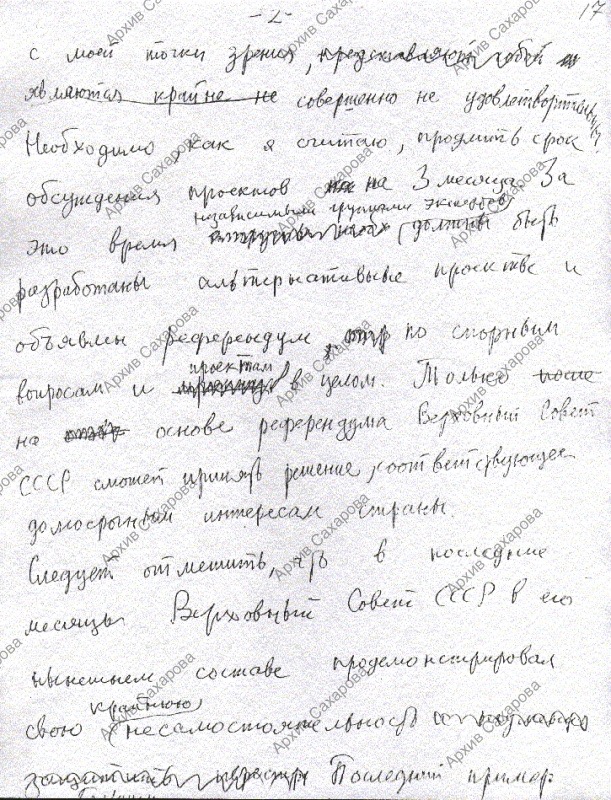 - 2 -
17
с моей точки зрения, представляют собой
являются крайне не совершенно не удовлетворительны.
Необходимо, как я считаю, продлить срок
обсуждения проектов на 3 месяца. За
независимыми группами экспертов
это время должны быть
разработаны альтернативные проекты и
объявлен референдум по спорным
проектам
вопросам и в целом. Только после
на основе референдума Верховный Совет
СССР сможет принять решение, соответствующее
долгосрочным интересам страны.
Следует отметить, что в последние
месяцы Верховный Совет СССР в его
нынешнем составе продемонстрировал
крайнюю
свою несамостоятельность
Последний пример
Архив Сахарова